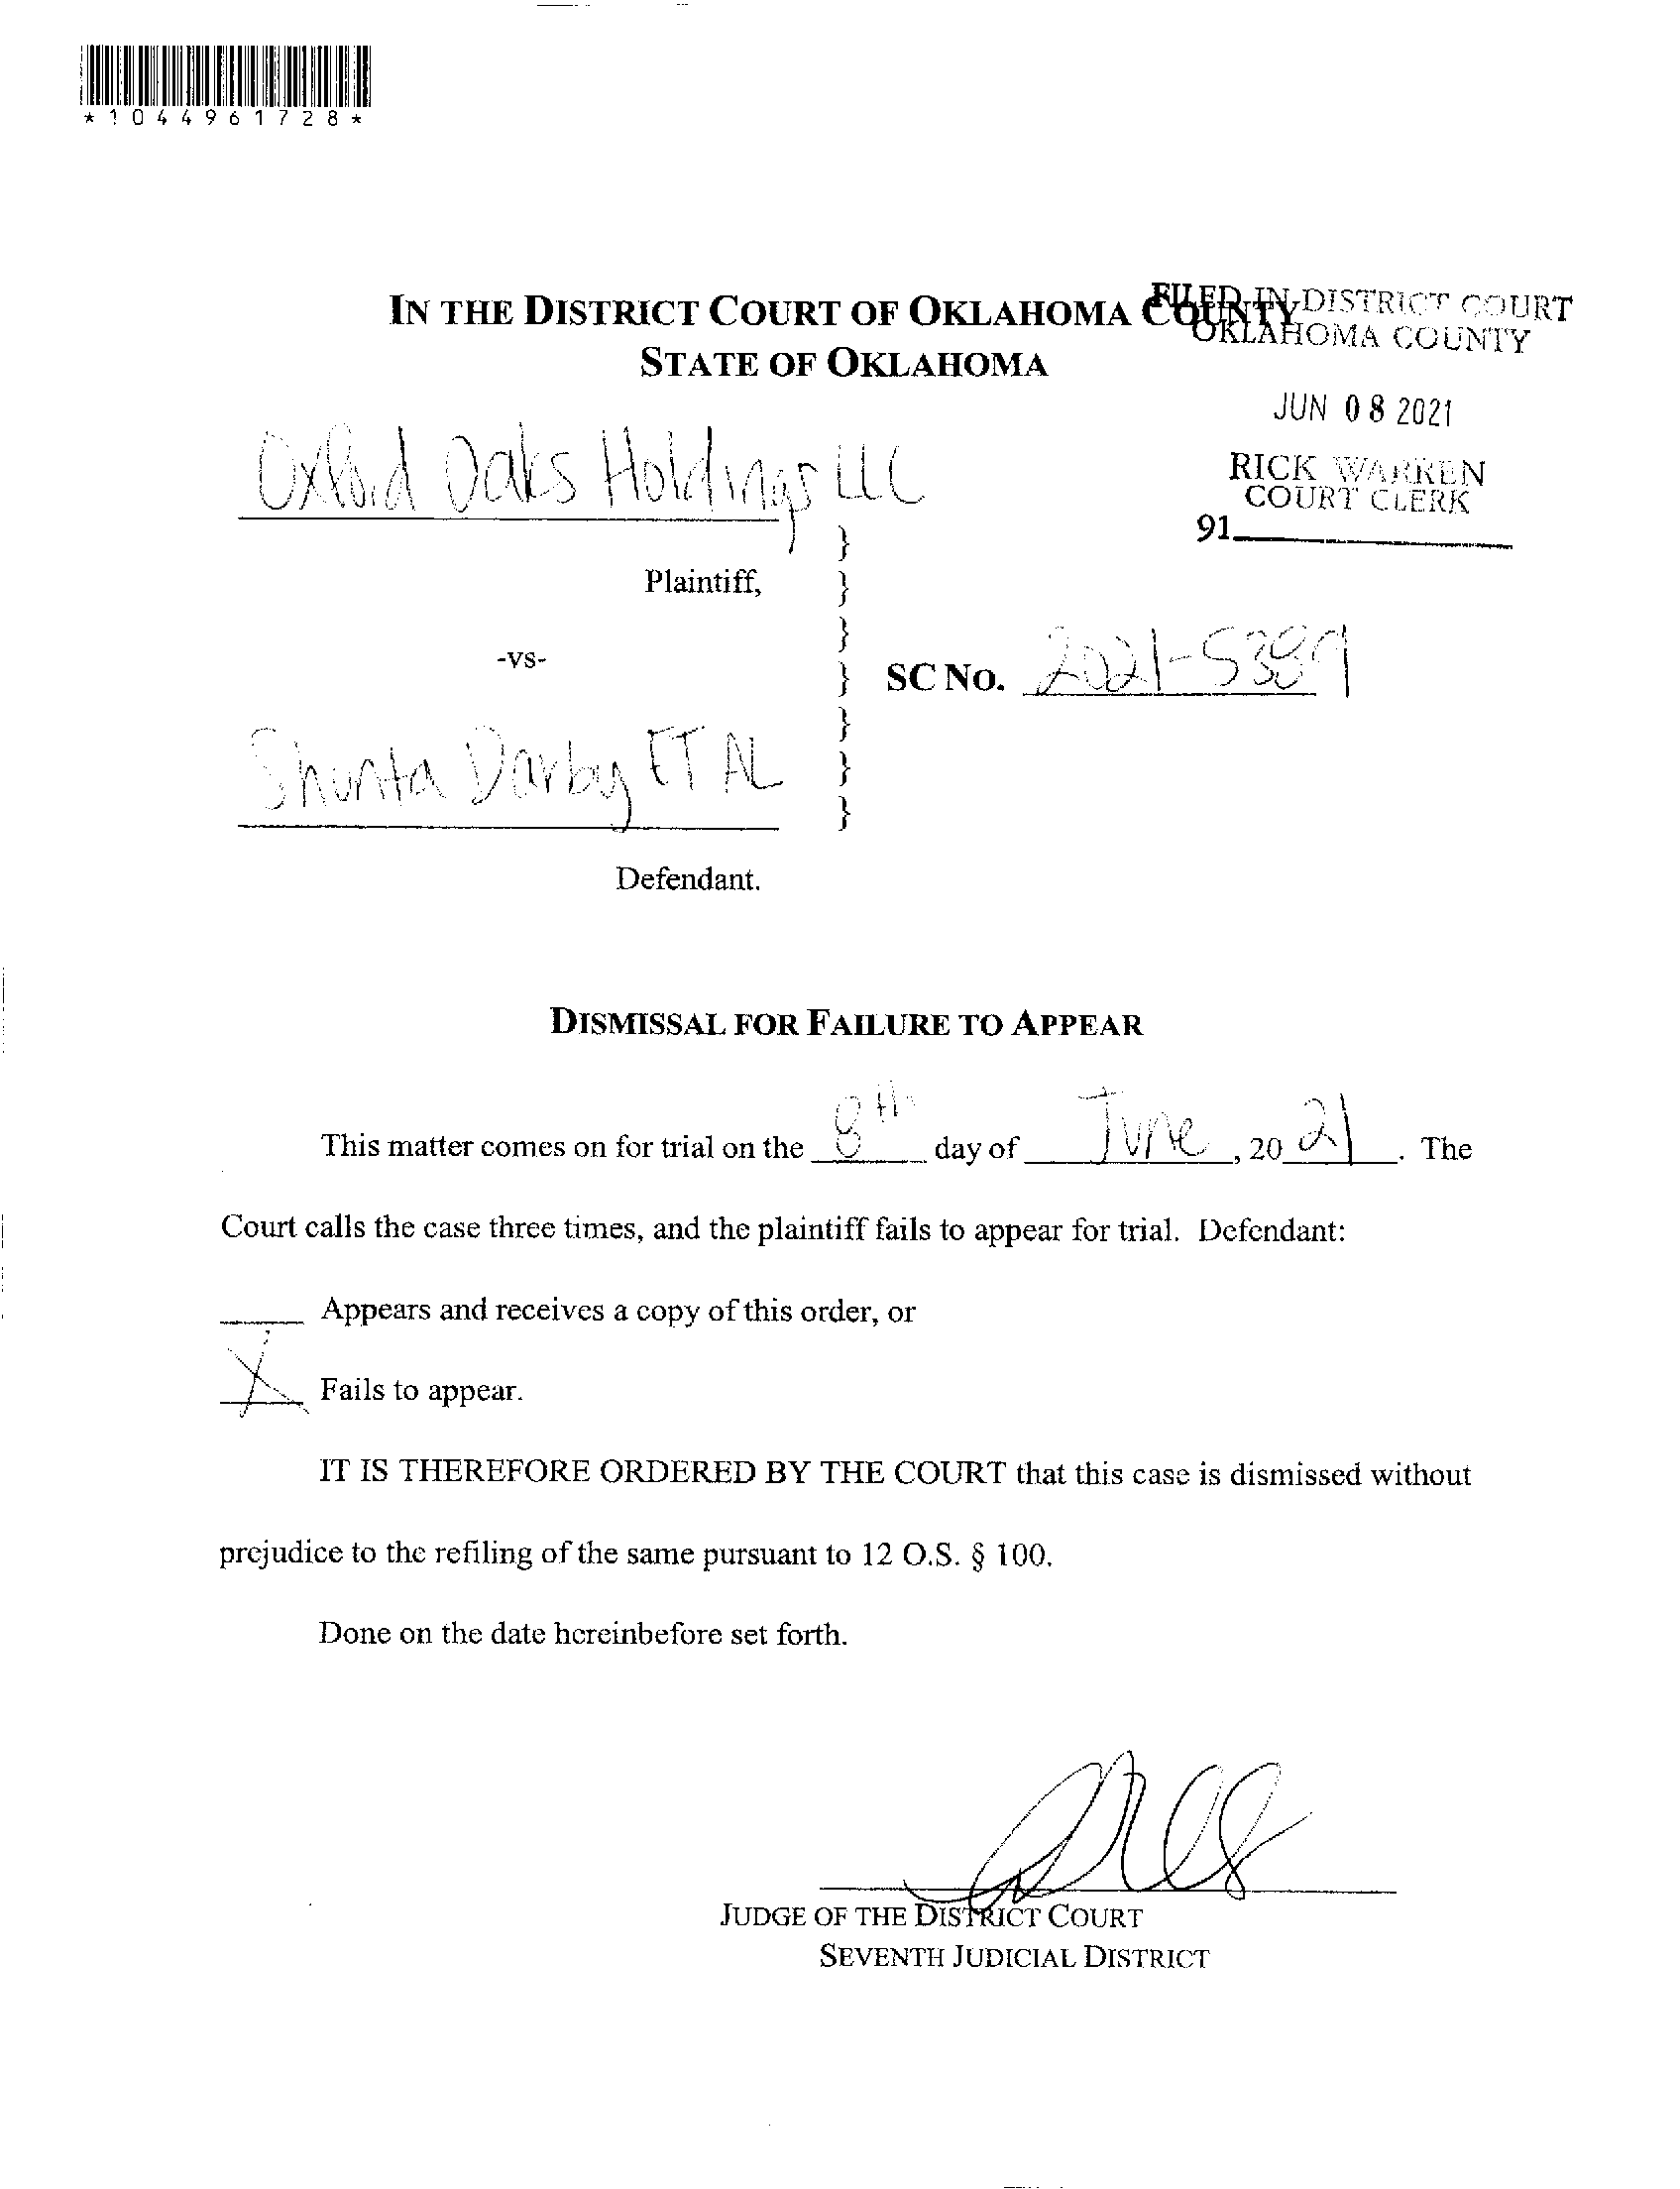 *1044961728*
IN THE DISTRICT COURT OF OKLAHOMA COUNTY
STATE OF OKLAHOMA
FILED IN DISTRICT COURT
OKLAHOMA COUNTY
JUN 08 2021
RICK WARREN
COURT CLERK
91
Oxford Oaks Holdings LLC
}
Plaintiff, }
}
-vs-
} SC NO. 2021-5389
}
Shunta Darby ET AL }
}
Defendant.
DISMISSAL FOR FAILURE TO APPEAR
This matter comes on for trial on the 8th day of June, 20 21. The
Court calls the case three times, and the plaintiff fails to appear for trial. Defendant:
Appears and receives a copy of this order, or
X Fails to appear.
IT IS THEREFORE ORDERED BY THE COURT that this case is dismissed without
prejudice to the refiling of the same pursuant to 12 O.S. § 100.
Done on the date hereinbefore set forth.
JUDGE OF THE DISTRICT COURT
SEVENTH JUDICIAL DISTRICT